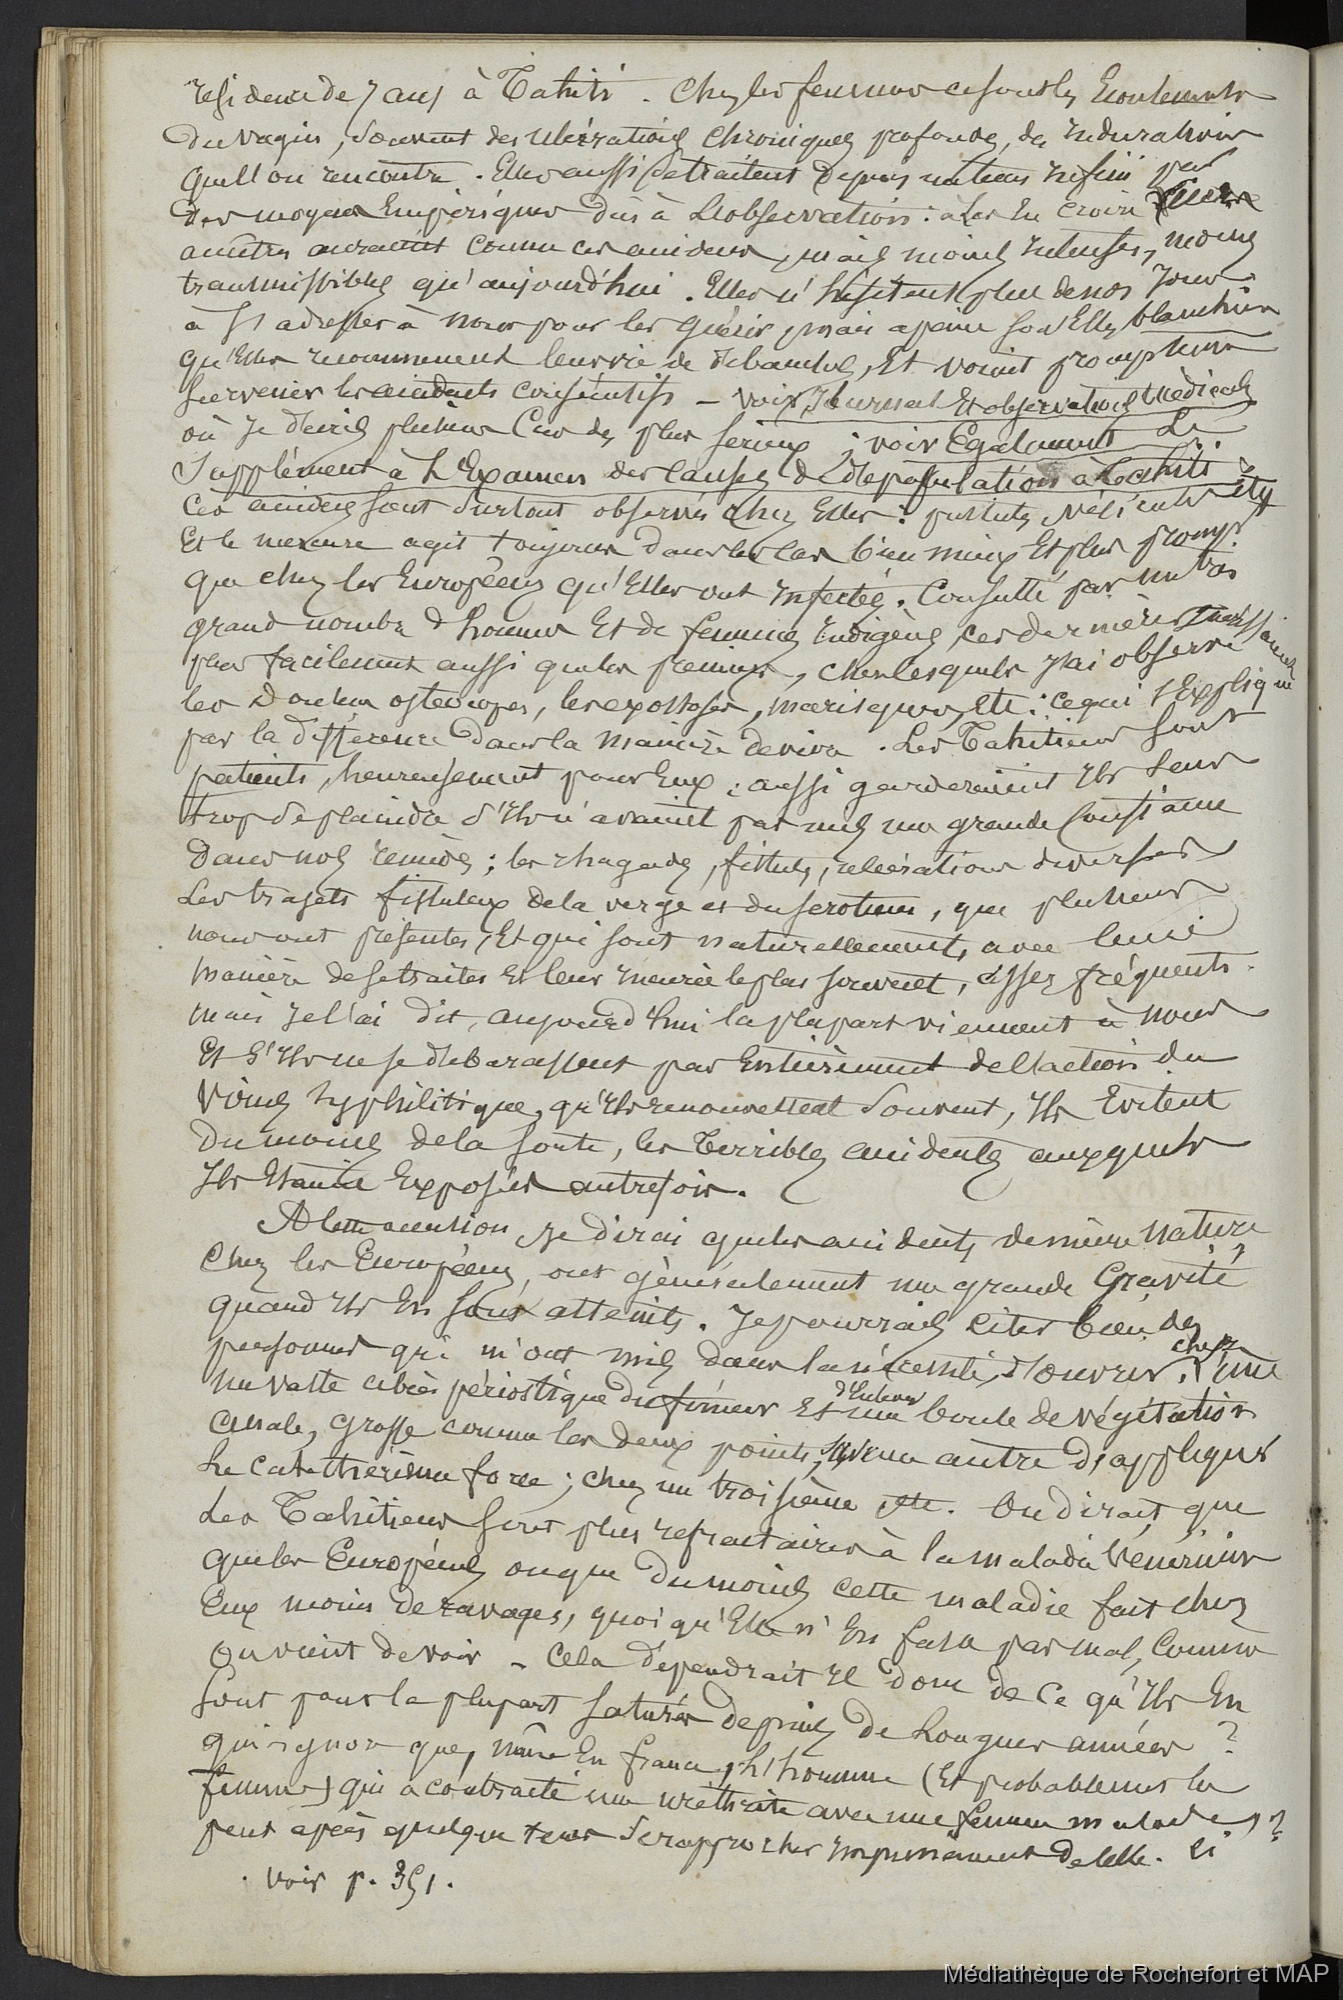 résidence de 7 ans à Tahiti. Chez les femmes ce sont les Ecoulements
du vagin, souvent des ulcérations chroniques profondes, des Indurations
que l'on rencontre. Elles aussi se traitent depuis un temps infini par
des moyens Empiriques dûs à L'observation : à Les En croire
ancetres auraient connu ces accidens, mais moins Intenses, moins
transmissibles qu'aujourd'hui. Elles n'hésitent plus de nos Jours
à S'adresser à nous pour les guérir, mais à peine sont Elles blanchies
qu'Elles recommencent leur vie de débauche, Et voient promptement
survenir les accidents consécutifs – voir Journal Et observations Médicales
où Je décris plusieurs Cas des plus sérieux ; voir Egalement Le
Supplément à L'Examen des causes de dépopulation à Tahiti.
Ces accidens sont surtout observés chez Elles : pustules, vésicules etc
Et le mercure agit toujours dans les cas bien mieux Et plus prompt.
que chez les Européens qu'Elles ont Infectés. Consulté par un très
grand nombre d'hommes Et de femmes Indigènes, ces dernières
plus facilement aussi que les premiers, chez lesquels J'ai observé
les Douleurs ostéocopes, les exostoses, etc : ce qui s'Explique
par la différence dans la manière de vivre. Les Tahitiens sont
patients, heureusement pour Eux ; aussi garderaient Ils sans
trop se plaindre s'Ils n'avaient pas mis une grande Confiance
dans nos remèdes ; les rhagades, fistules, ulcérations diverses
Les trajets fistuleux de la verge et du scrotum, que plusieurs
nous ont présentés, Et qui sont naturellement, avec leur
manière de se traiter Et leur Incurie le plus souvent, assez fréquents.
mais Je l'ai dit, aujourd'hui la plupart viennent à nous
Et s'Ils ne se débarassent pas Entièrement de l'action du
Virus syphilitique, qu'Ils renouvellent souvent, Ils Evitent
du moins de la sorte, les Terribles accidents auxquels
Ils Etaient Exposés autrefois.
A cette occasion, Je dirai que les accidents de même nature
Chez les Européens, ont généralement une grande Gravité,
quand Ils En sont atteints. Je pourrais citer bien des
personnes qui m'ont mis dans la nécessité, d'ouvrir, chez l'une
un vaste abcès périostique du fémur Et d'Enlever une boule de végétation
anale, grosse comme les deux points ; une autre d'appliquer
Le cathétérisme forcé ; chez un troisième etc. On dirait que
Les Tahitiens sont plus réfractaires à la maladie Vénérienne
que les Européens ou que du moins cette maladie fait chez
Eux moins de ravages, quoiqu'Elle n'En fasse pas mal, comme
On vient de voir – Cela dépendrait Il donc de Ce qu'Ils En
sont pour la plupart saturés depuis de Longues années ?
qui ignore que, même En france, L'homme (Et probablement la
femme) qui a contracté une uréthrite avec une femme malade,
peut après quelque tems se rapprocher Impunément de celle. ci ?
. voir p. 351.